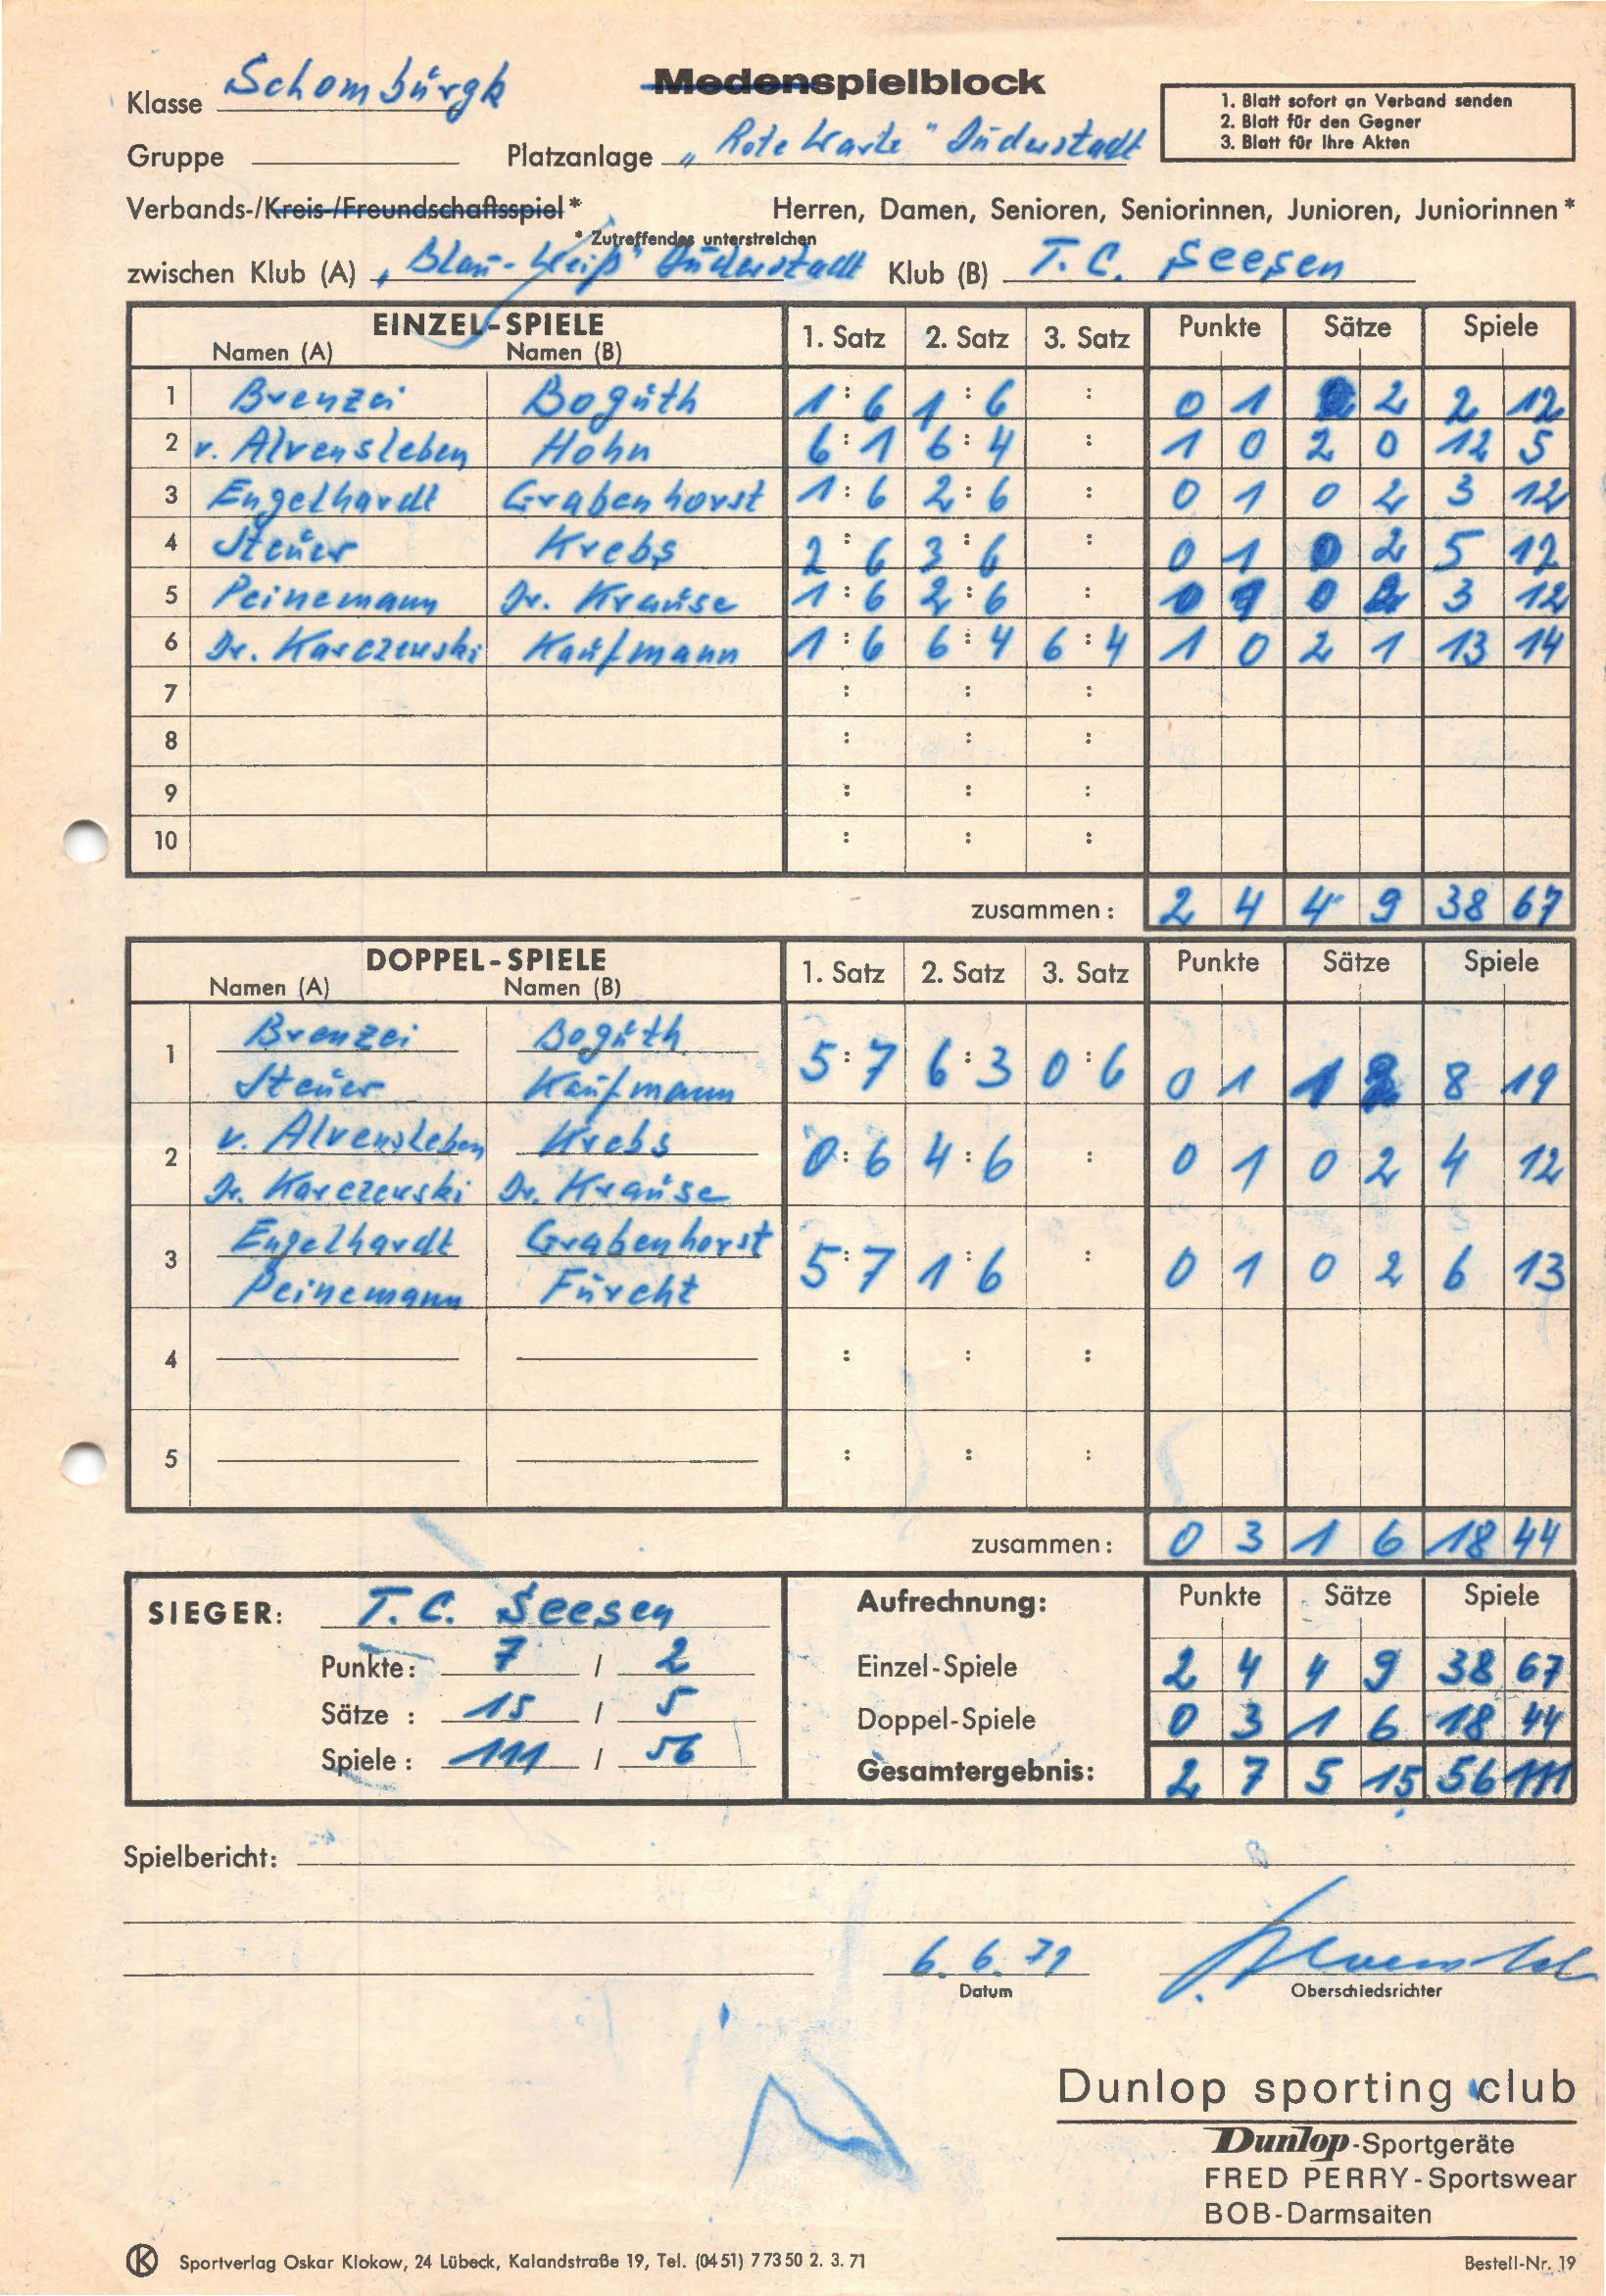 Klasse Schomburgk
Medenspielblock
1. Blatt sofort an Verband senden
2. Blatt für den Gegner
3. Blatt für Ihre Akten
Gruppe Platzanlage „Rote Warte" Duderstadt
Verbands-/Kreis-/Freundschaftsspiel* Herren, Damen, Senioren, Seniorinnen, Junioren, Juniorinnen*
* Zutreffendes unterstreichen
zwischen Klub (A) „Blau-Weiß" Duderstadt Klub (B) T.C. Seesen
EINZEL-SPIELE 1. Satz 2. Satz 3. Satz Punkte Sätze Spiele
Namen (A) Namen (B)
1 Brenzei Boguth 1:6 1:6 : 0 1 0 2 2 12
2 v. Alvensleben Hohn 6:1 6:4 : 1 0 2 0 12 5
3 Engelhardt Grabenhorst 1:6 2:6 : 0 1 0 2 3 12
4 Steuer Krebs 2:6 3:6 : 0 1 0 2 5 12
5 Peinemann Dr. Krause 1:6 2:6 : 0 1 0 2 3 12
6 Dr. Karczewski Kaufmann 1:6 6:4 6:4 1 0 2 1 13 14
7 : : :
8 : : :
9 : : :
10 : : :
zusammen: 2 4 4 9 38 67
DOPPEL-SPIELE 1. Satz 2. Satz 3. Satz Punkte Sätze Spiele
Namen (A) Namen (B)
Brenzei Boguth
1 5:7 6:3 0:6 0 1 1 2 8 19
Steuer Kaufmann
v. Alvensleben Krebs
2 0:6 4:6 : 0 1 0 2 4 12
Dr. Karczewski Dr. Krause
Engelhardt Grabenhorst
3 5:7 1:6 : 0 1 0 2 6 13
Peinemann Fürcht
4 : : :
5 : : :
zusammen: 0 3 1 6 18 44
SIEGER: T.C. Seesen Aufrechnung: Punkte Sätze Spiele
Punkte: 7 / 2 Einzel-Spiele 2 4 4 9 38 67
Sätze : 15 / 5 Doppel-Spiele 0 3 1 6 18 44
Spiele : 111 / 56 Gesamtergebnis: 2 7 5 15 56 111
Spielbericht:
6.6.71
Datum Oberschiedsrichter
Dunlop sporting club
Dunlop-Sportgeräte
FRED PERRY-Sportswear
BOB-Darmsaiten
K Sportverlag Oskar Klokow, 24 Lübeck, Kalandstraße 19, Tel. (0451) 77350 2. 3. 71 Bestell-Nr. 19